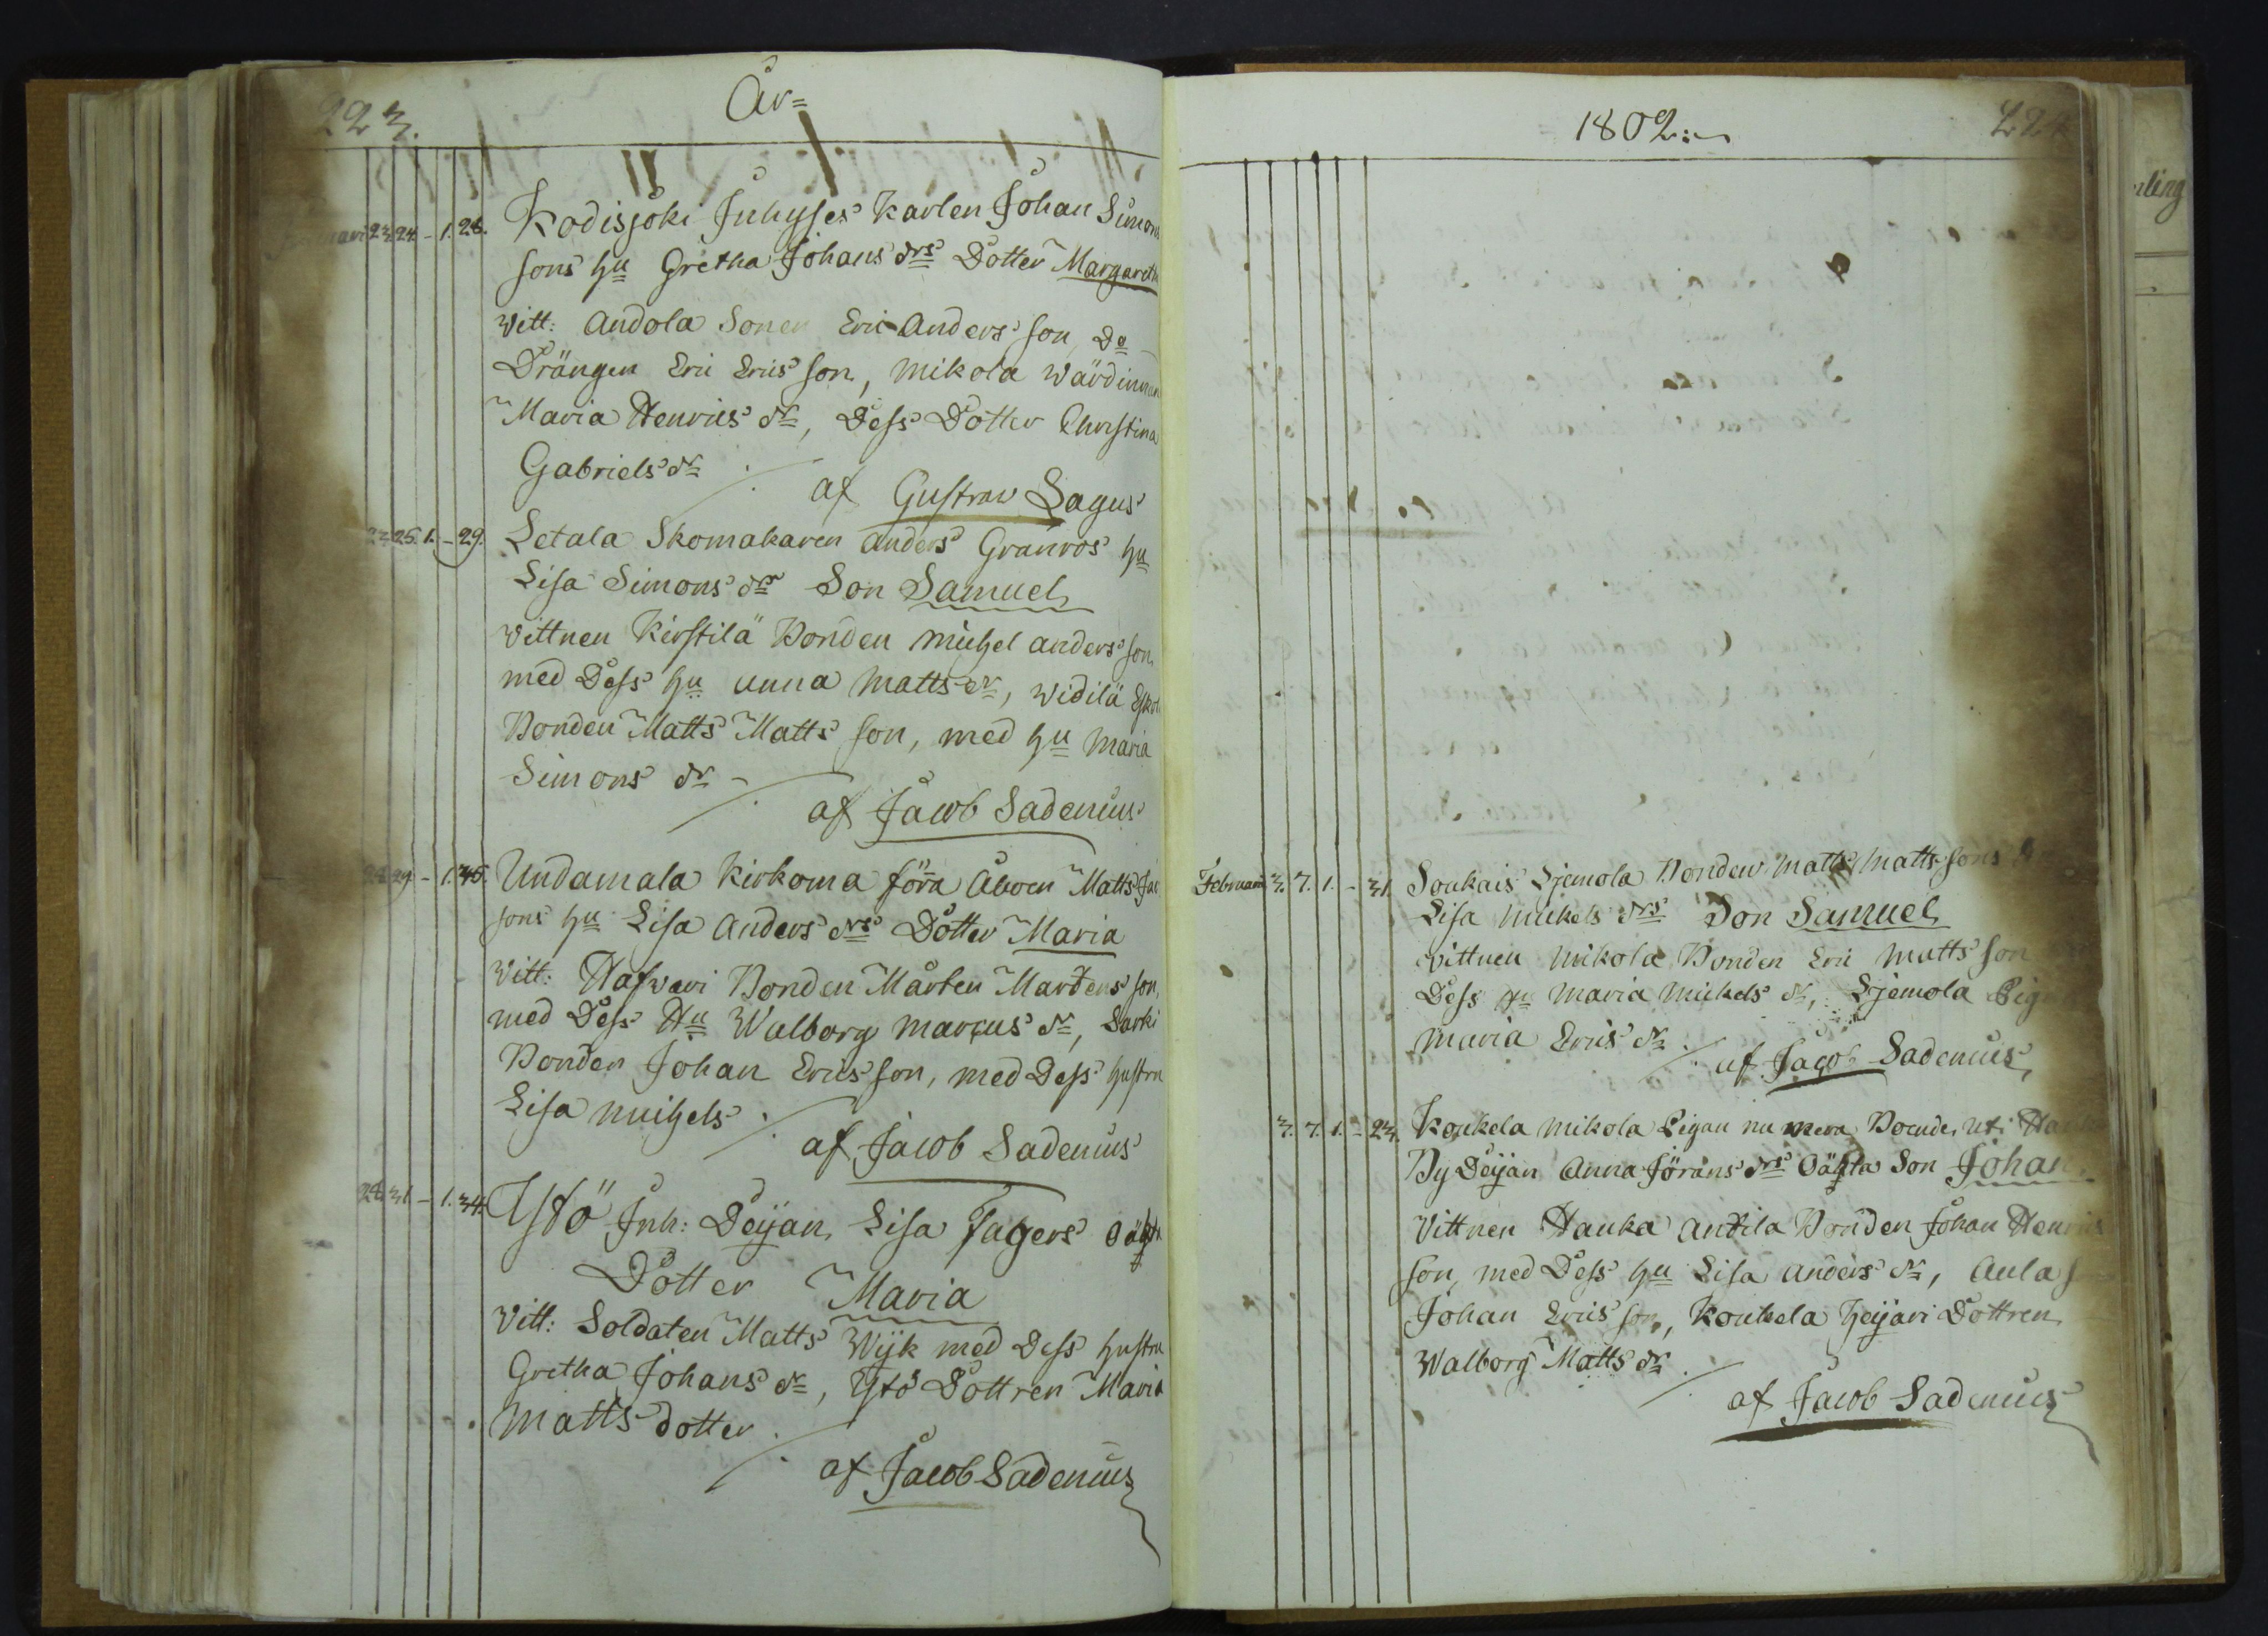 223.
År=
Januari 23. 24. - 1. 28. Kodisjoki Inhyses Karlen Johan Simons
sons hu Gretha Johans drs Dotter Margaretha
Vitt: Andola Sonen Eric Anders son, Do
Drängen Eric Erics son, Mikola Wärdinnan
Maria Henrics dr, Dess Dotter Christina
Gabriels dr
af Gustrav Lagus
23. 25. 1. - 29. Letala Skomakaren Anders Granros hu
Lisa Simons drs Son Samuel
Vittnen Kirstilä Bonden Michel Anders son
med Dess hu Anna Matts dr, Widilä
Bonden Matts Matts son, med hu Maria
Simons dr
af Jacob Sadenius
29. - 1. 35. Undamala Kirkoma förra Åboen Matts
sons hu Lisa Anders drs Dotter Maria
Vitt: Hafvari Bonden Mårten Mårtens son,
med Dess Hu Walborg Marcus dr, Sarki
Bonden Johan Erics son, med Dess hustru
Lisa Michels
af Jacob Sadenius
31. - 1. 34. Ystö Inh: Deijan Lisa Fagers oägta
Dotter Maria
Vitt: Soldaten Matts Wijk med Dess hustru
Gretha Johans dr, Ystö Dottren Maria
Matts dotter
af Jacob Sadenius
1802:
224
Februari 3. 7. 1. - 31. Soukais Sjemola Bonden Matts Matts sons
Lisa Mickels drs Son Samuel
Vittnen Mikola Bonden Eric Matts son
Dess hu Maria Mickels dr, Sjemola
Maria Erics dr
af Jacob Sadenius
3. 7. 1. - 23. Koukela Mikola Pigan nu mera Boende uti
By Deijan Anna Jörans drs Oägta Son Johan
Vittnen Hauka Andila Bonden Johan Henrics
son, med Dess hu Lisa Anders dr, Aula
Johan Erics son, Koukela Heijari Dottren
Walborg Matts dr
af Jacob Sadenius
ling